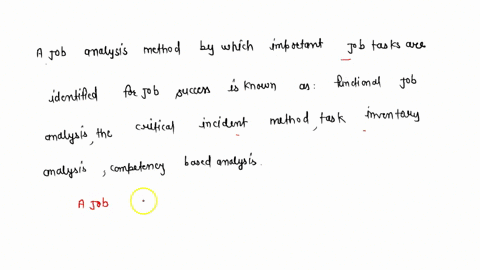 A Job analysis method by which important job tasks are
identified for job success is known as: functional job
analysis, the critical incident method, task inventory
analysis, competency based analysis.
A job